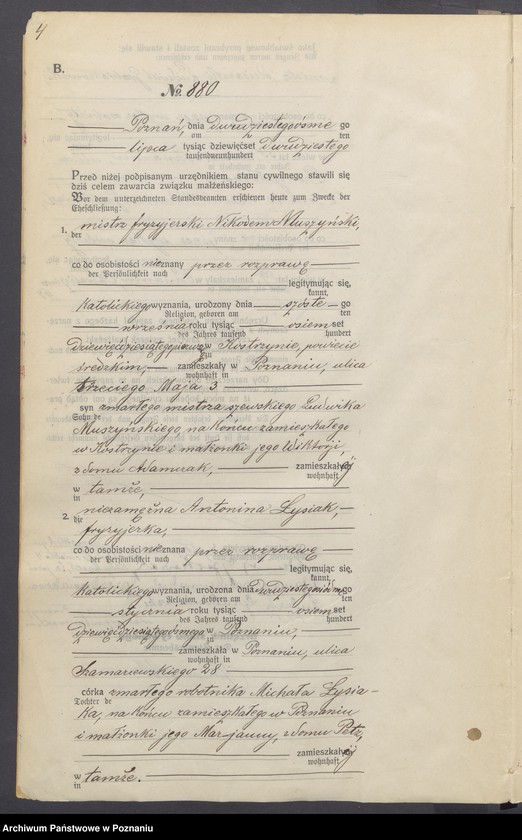 4
B.
№ 880
Poznań, dnia dwudziestegoósme go
am ten
lipca tysiąc dziewięćset dwudziestego
tausendneunhundert
Przed niżej podpisanym urzędnikiem stanu cywilnego stawili się
dziś celem zawarcia związku małżeńskiego:
Vor dem unterzeichneten Standesbeamten erschienen heute zum Zwecke der
Eheschließung:
1. mistrz fryzjerski Nikodem Muszyński,
der
co do osobistości nieznany przez rozprawę
der Persönlichkeit nach
legitymując się,
kannt,
katolickiego wyznania, urodzony dnia szóste go
Religion, geboren am ten
września roku tysiąc osiem set
des Jahres tausend hundert
dziewięćdziesiątego w Kostrzynie, powiecie
zu
średzkim, zamieszkały w Poznaniu, ulica
wohnhaft in
Trzeciego Maja 3
syn zmarłego mistrza szewskiego Ludwika
Sohn de
Muszyńskiego, na końcu zamieszkałego
w Kostrzynie i małżonki jego Wiktorji,
z domu Adamczak, zamieszkałej
wohnhaft
w tamże,
in
2. niezamężna Antonina Łysiak,
die
fryzjerka,
co do osobistości nieznana przez rozprawę
der Persönlichkeit nach
legitymując się,
kannt,
katolickiego wyznania, urodzona dnia go
Religion, geboren am ten
stycznia roku tysiąc osiem set
des Jahres tausend hundert
dziewięćdziesiątegoósmego w Poznaniu,
zu
zamieszkała w Poznaniu, ulica
wohnhaft in
Szamarzewskiego 28
córka zmarłego robotnika Michała Łysia-
Tochter de
ka, na końcu zamieszkałego w Poznaniu
i małżonki jego Marjanny, z domu Petz,
zamieszkałej
wohnhaft
w tamże.
in
Archiwum Państwowe w Poznaniu